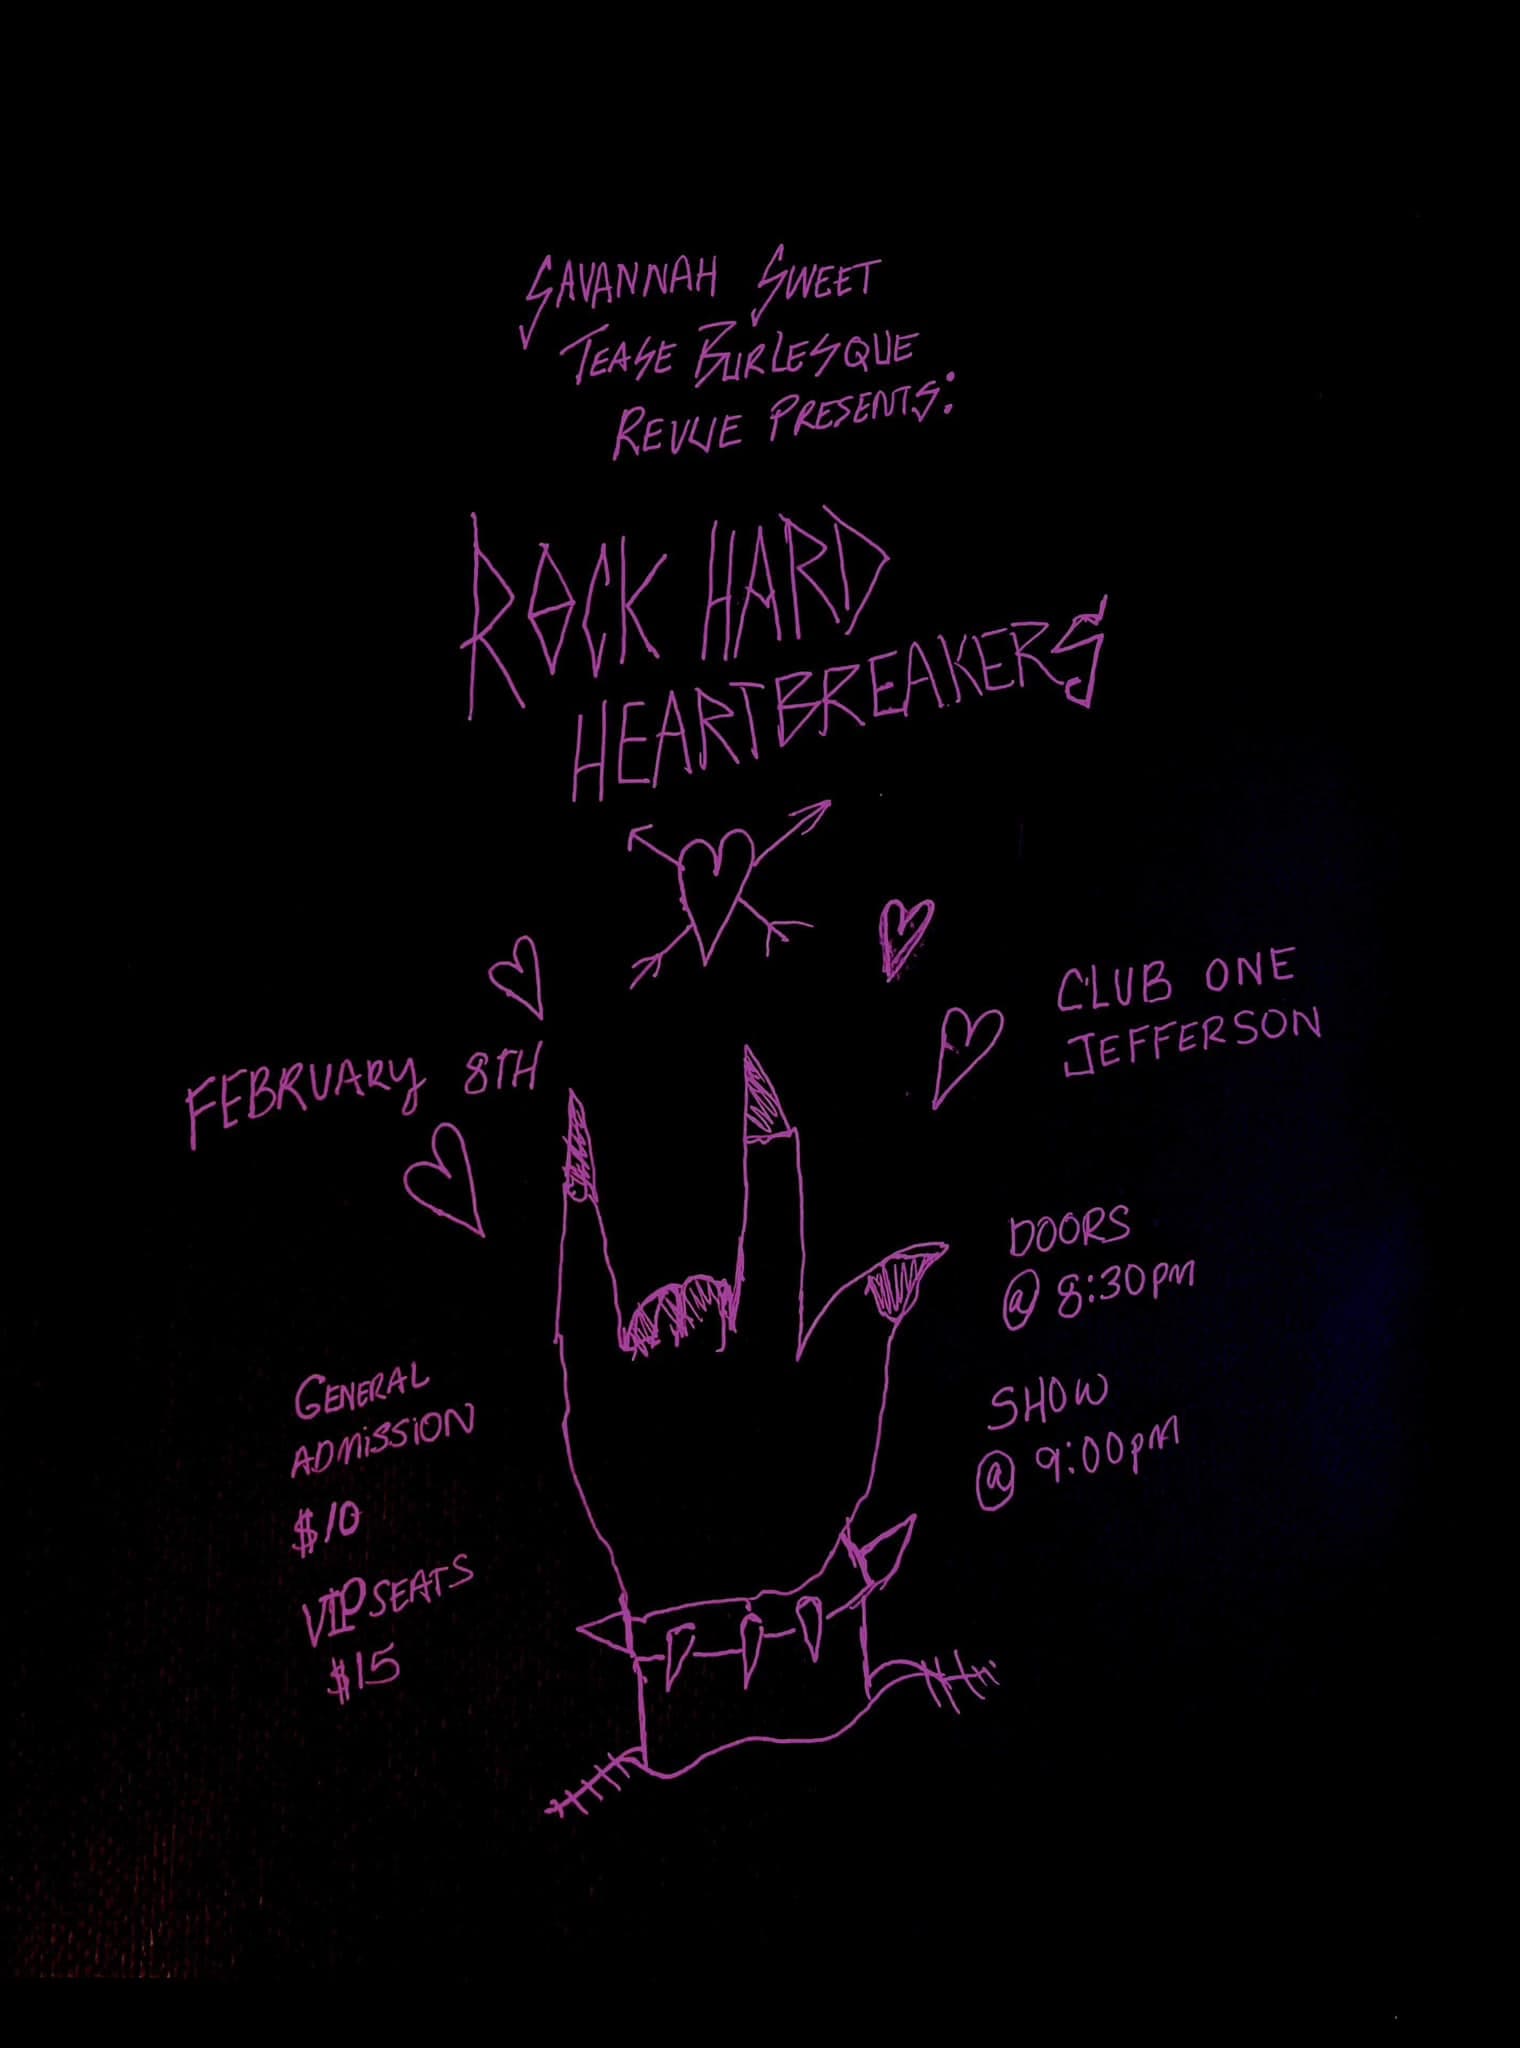 SAVANNAH SWEET
TEASE BURLESQUE
REVUE PRESENTS:
ROCK HARD
HEARTBREAKERS
CLUB ONE
JEFFERSON
FEBRUARY 8TH
DOORS
@ 8:30PM
SHOW
@ 9:00PM
GENERAL
ADMISSION
$10
VIP SEATS
$15